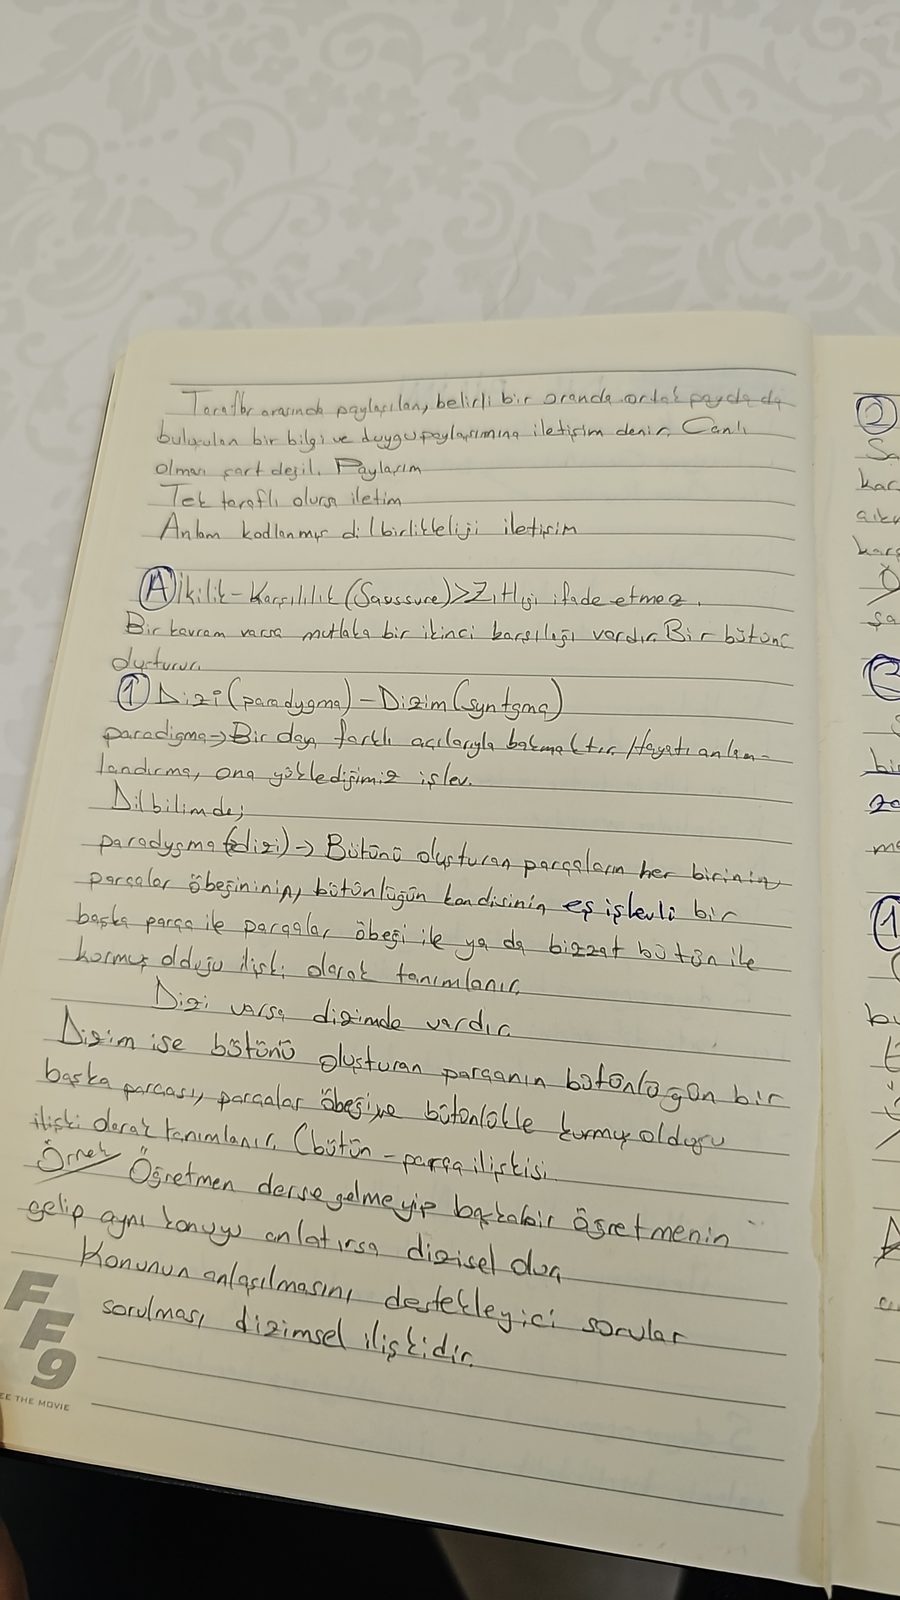 Taraflar arasında paylaşılan, belirli bir oranda ortak paydada
buluşulan bir bilgi ve duygu paylaşımına iletişim denir. Canlı
olması şart değil. Paylaşım
Tek taraflı olursa iletim
Anlam kodlanmış dilbirlikteliği iletişim
A İkilik-Karşılılık (Saussure) > Zıtlığı ifade etmez.
Bir kavram varsa mutlaka bir ikinci karşılığı vardır. Bir bütünü
oluşturur.
1 Dizi (paradygma) - Dizim (syntgma)
paradigma → Bir olaya farklı açılarıyla bakmaktır. Hayatı anlam-
landırma, ona yüklediğimiz işlev.
Dilbilimde;
paradygma (dizi) → Bütünü oluşturan parçaların her birinin
parçalar öbeğininin, bütünlüğün kendisinin eş işlevli bir
başka parça ile parçalar öbeği ile ya da bizzat bütün ile
kurmuş olduğu ilişki olarak tanımlanır.
Dizi varsa dizimde vardır.
Dizim ise bütünü oluşturan parçanın bütünlüğün bir
başka parçası, parçalar öbeği ve bütünlükle kurmuş olduğu
ilişki olarak tanımlanır. (bütün - parça ilişkisi
Örnek Öğretmen derse gelmeyip başkabir öğretmenin
gelip aynı konuyu anlatırsa dizisel olur
Konunun anlaşılmasını destekleyici sorular
sorulması dizimsel ilişkidir.
FF9
SEE THE MOVIE
2
1